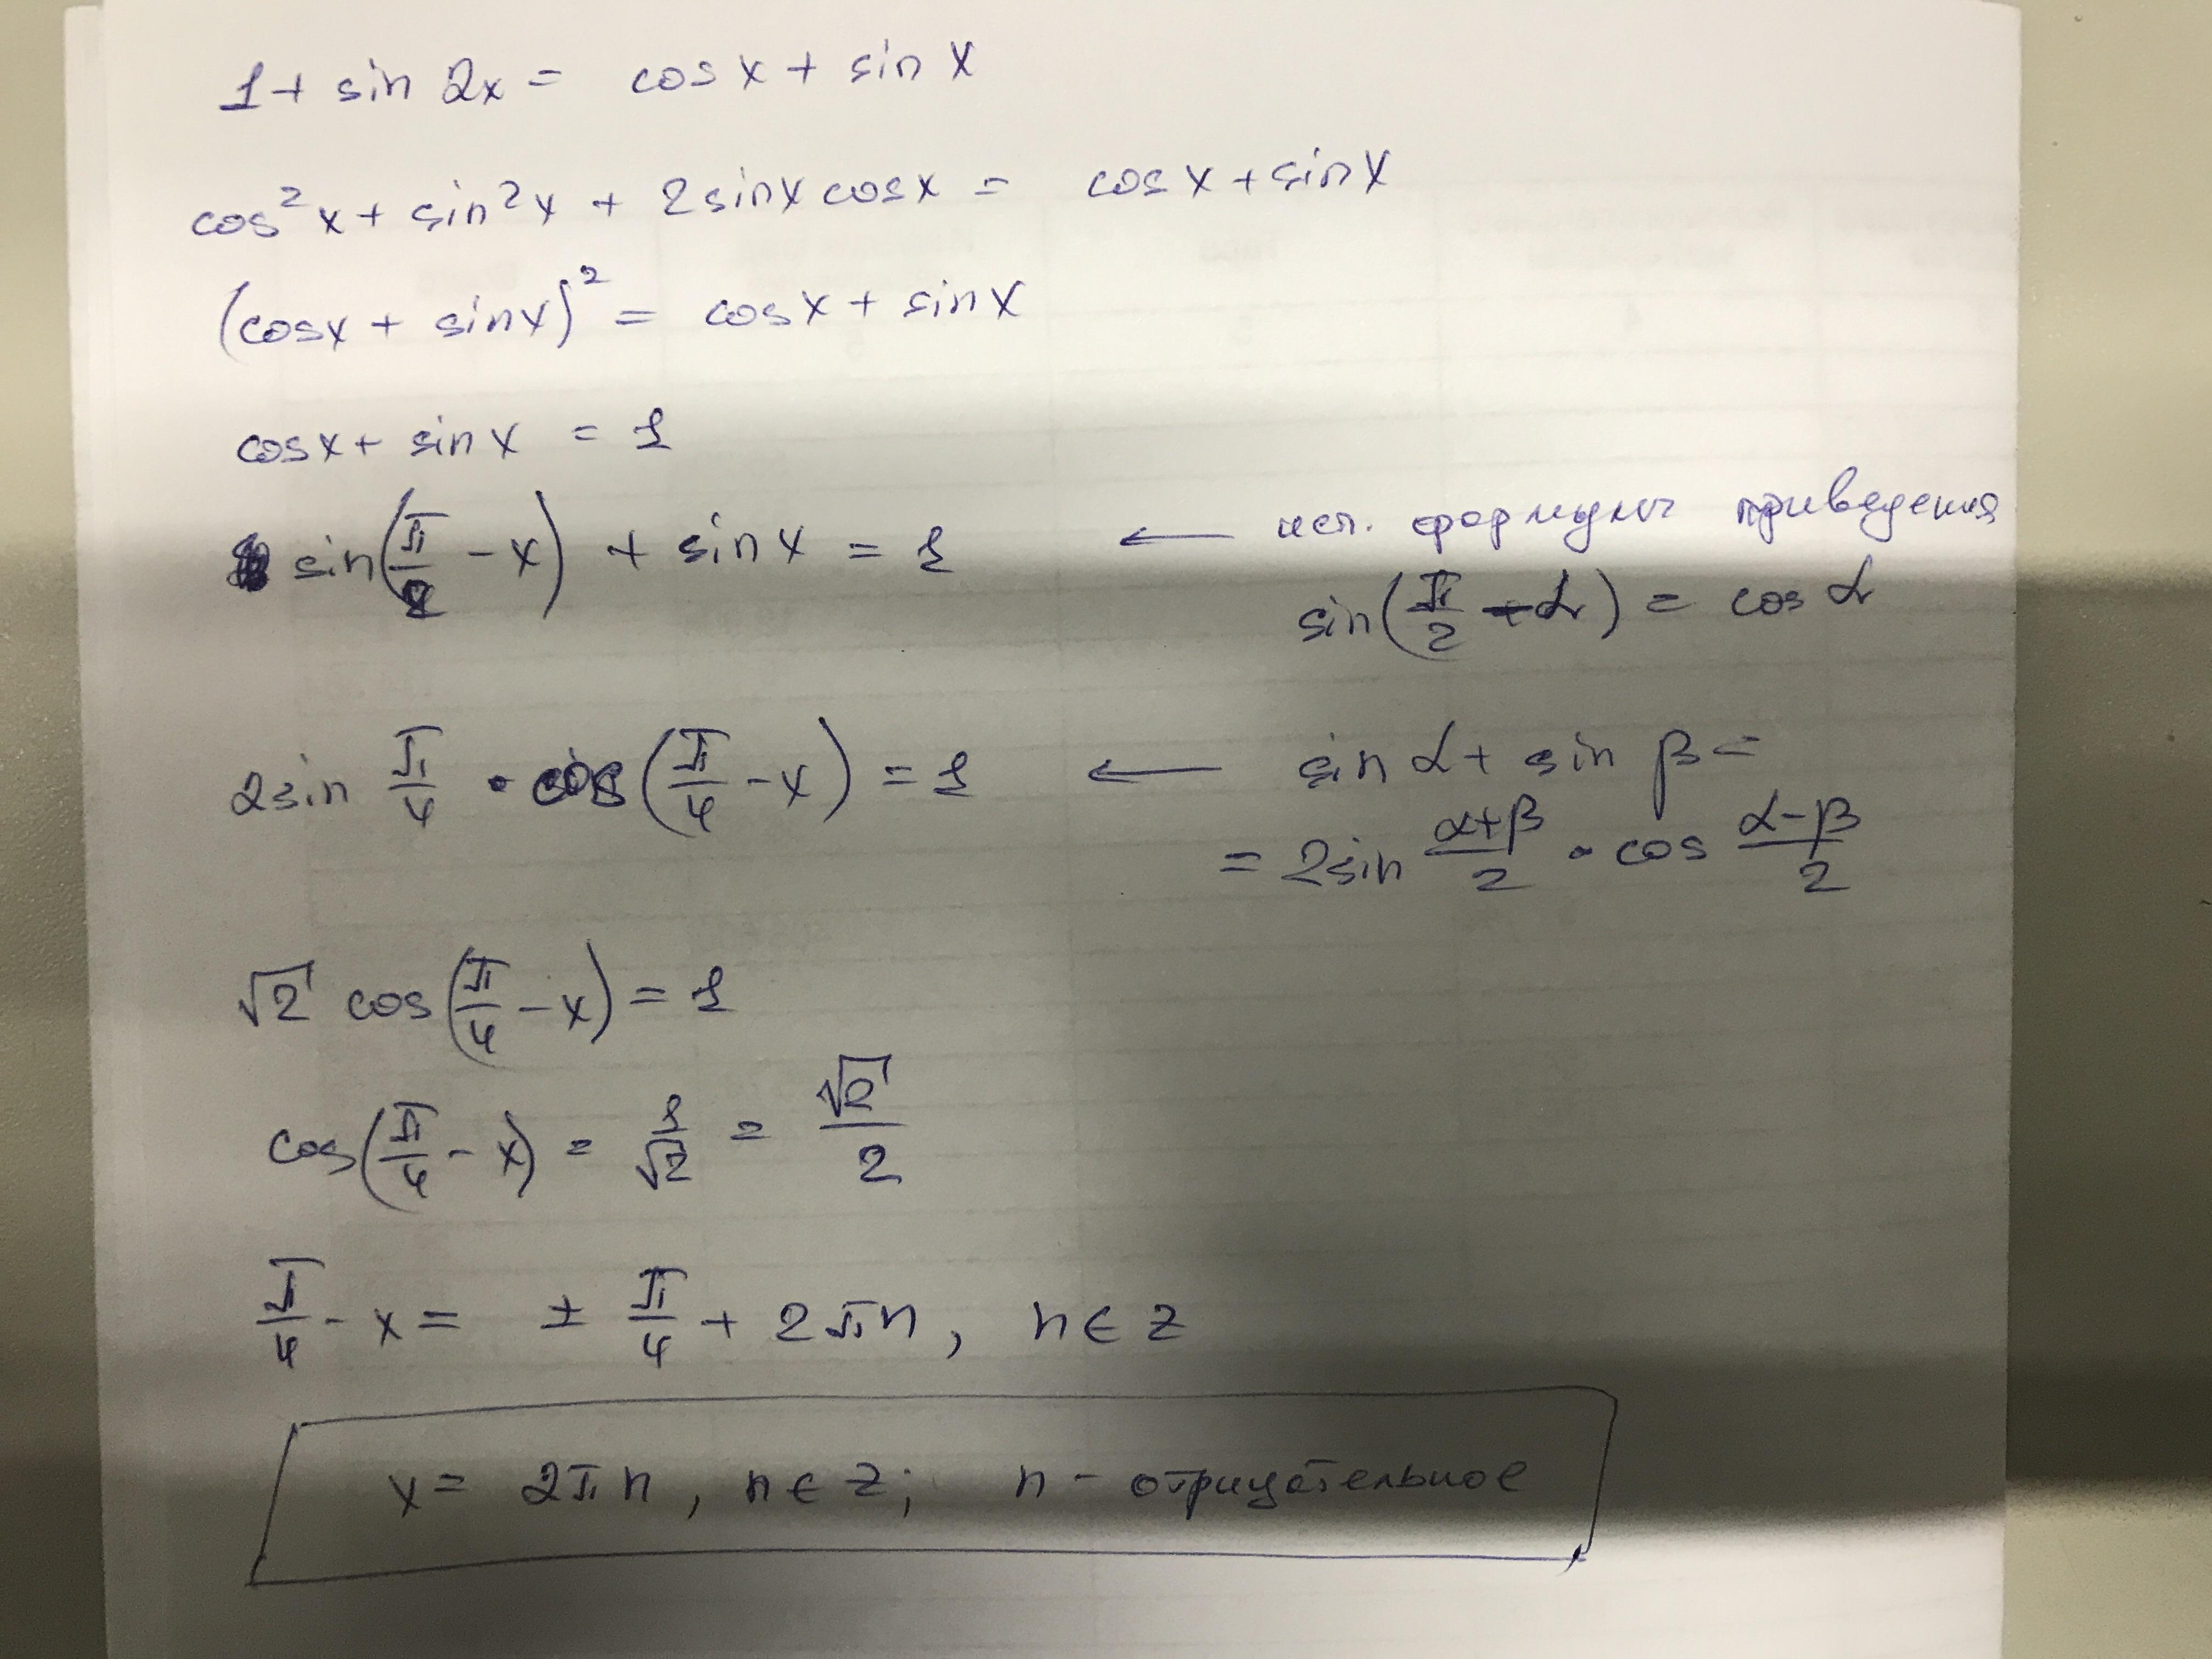 1 + sin 2x = cos x + sin x
cos²x + sin²x + 2sinx cosx = cosx + sinx
(cosx + sinx)² = cosx + sinx
cosx + sinx = 1
sin(π/2 - x) + sinx = 1 ← исп. формулы приведения
sin(π/2 - α) = cos α
2sin π/4 · cos(π/4 - x) = 1 ← sin α + sin β =
= 2sin (α+β)/2 · cos (α-β)/2
√2 cos(π/4 - x) = 1
cos(π/4 - x) = 1/√2 = √2/2
π/4 - x = ± π/4 + 2πn, n ∈ z
x = 2πn, n ∈ z; n - отрицательное